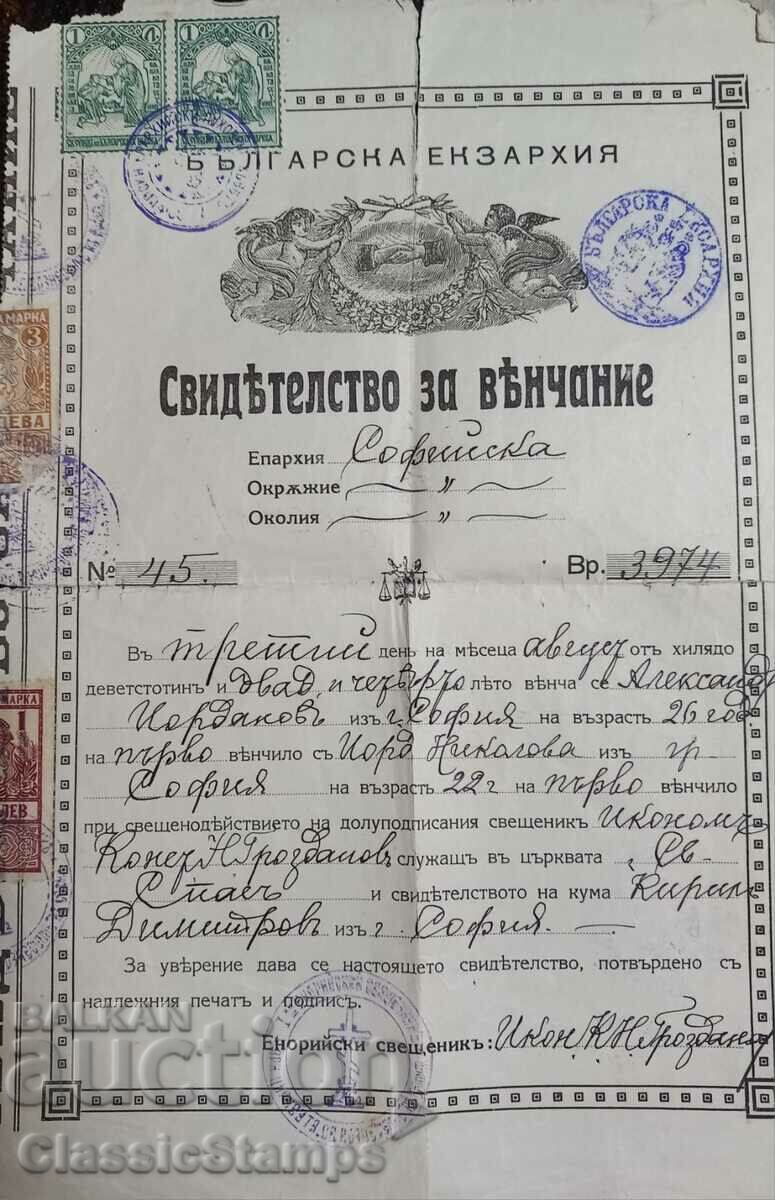 1 Л. 1 Л.
БЪЛГАРСКА ЕКЗАРХИЯ
БЪЛГАРСКА ЕКСАРХИЯ
МАРКА
3
ЛЕВА
Свидѣтелство за вѣнчание
Епархия Софийска
Окрѫжие — „ —
Околия — „ —
№ 45. Вр. 3974
Въ третий день на мѣсеца августъ отъ хилядо
деветстотин и двад. и четвърто лѣто вѣнча се Александъ
Йордановъ изъ г. София на възрасть 26 год.
на първо вѣнчило съ Йорд. Николова изъ гр.
София на възрасть 22 г на първо вѣнчило
при свещенодѣйствието на долуподписания свещеникъ Икономъ
Н Грозданов служащъ въ църквата „Св.
Спасъ и свидѣтелството на кума Кирил
Димитровъ изъ г. София. —
За увѣрение дава се настоящето свидѣтелство, потвърдено съ
надлежния печатъ и подпись.
Енорийски свещеникъ: Икон. К. Н. Грозданов
МАРКА
1
ЛЕВ
BALKAN
auction
ClassicStamps